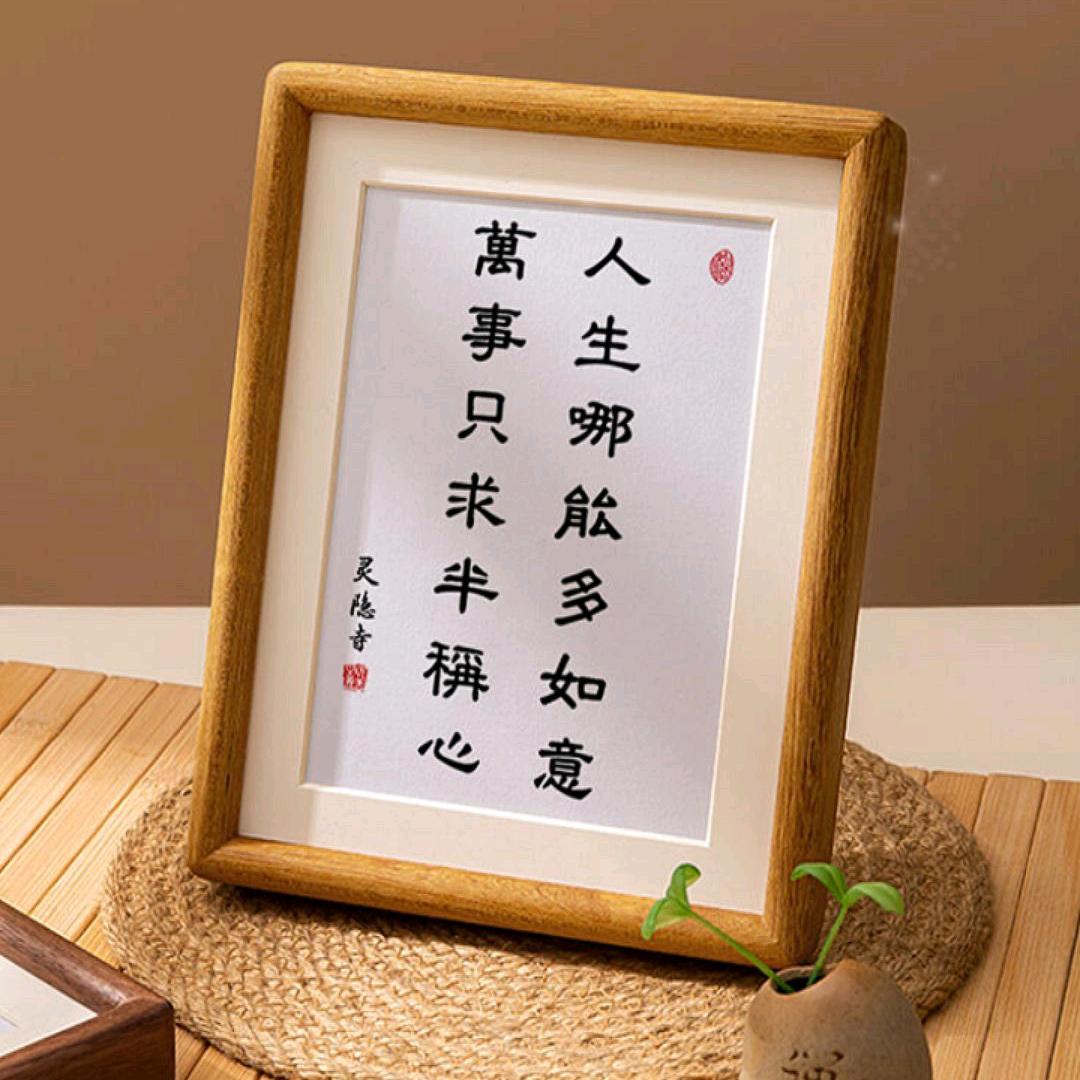 人生哪能多如意
萬事只求半稱心
灵隐寺